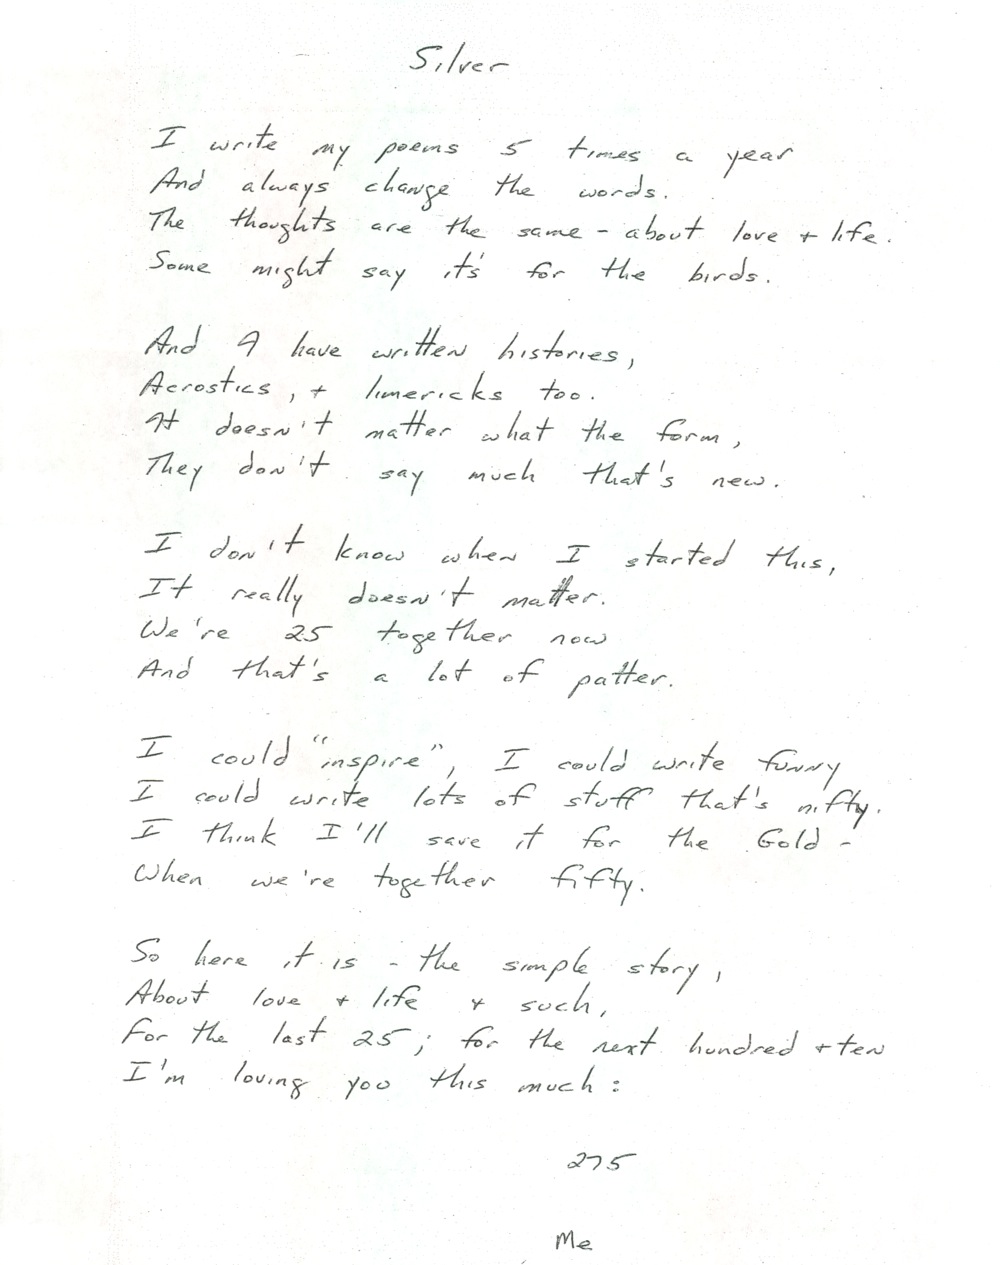 Silver
I write my poems 5 times a year
And always change the words.
The thoughts are the same - about love + life.
Some might say it's for the birds.
And I have written histories,
Acrostics, + limericks too.
It doesn't matter what the form,
They don't say much that's new.
I don't know when I started this,
It really doesn't matter.
We're 25 together now
And that's a lot of patter.
I could "inspire", I could write funny
I could write lots of stuff that's nifty.
I think I'll save it for the Gold -
When we're together fifty.
So here it is - the simple story,
About love + life + such,
For the last 25; for the next hundred + ten
I'm loving you this much:
275
Me